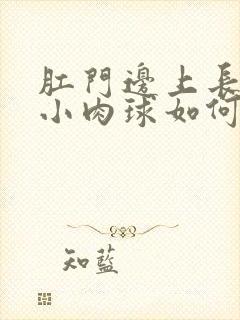 肛門邊上長
小肉球如何
知藍